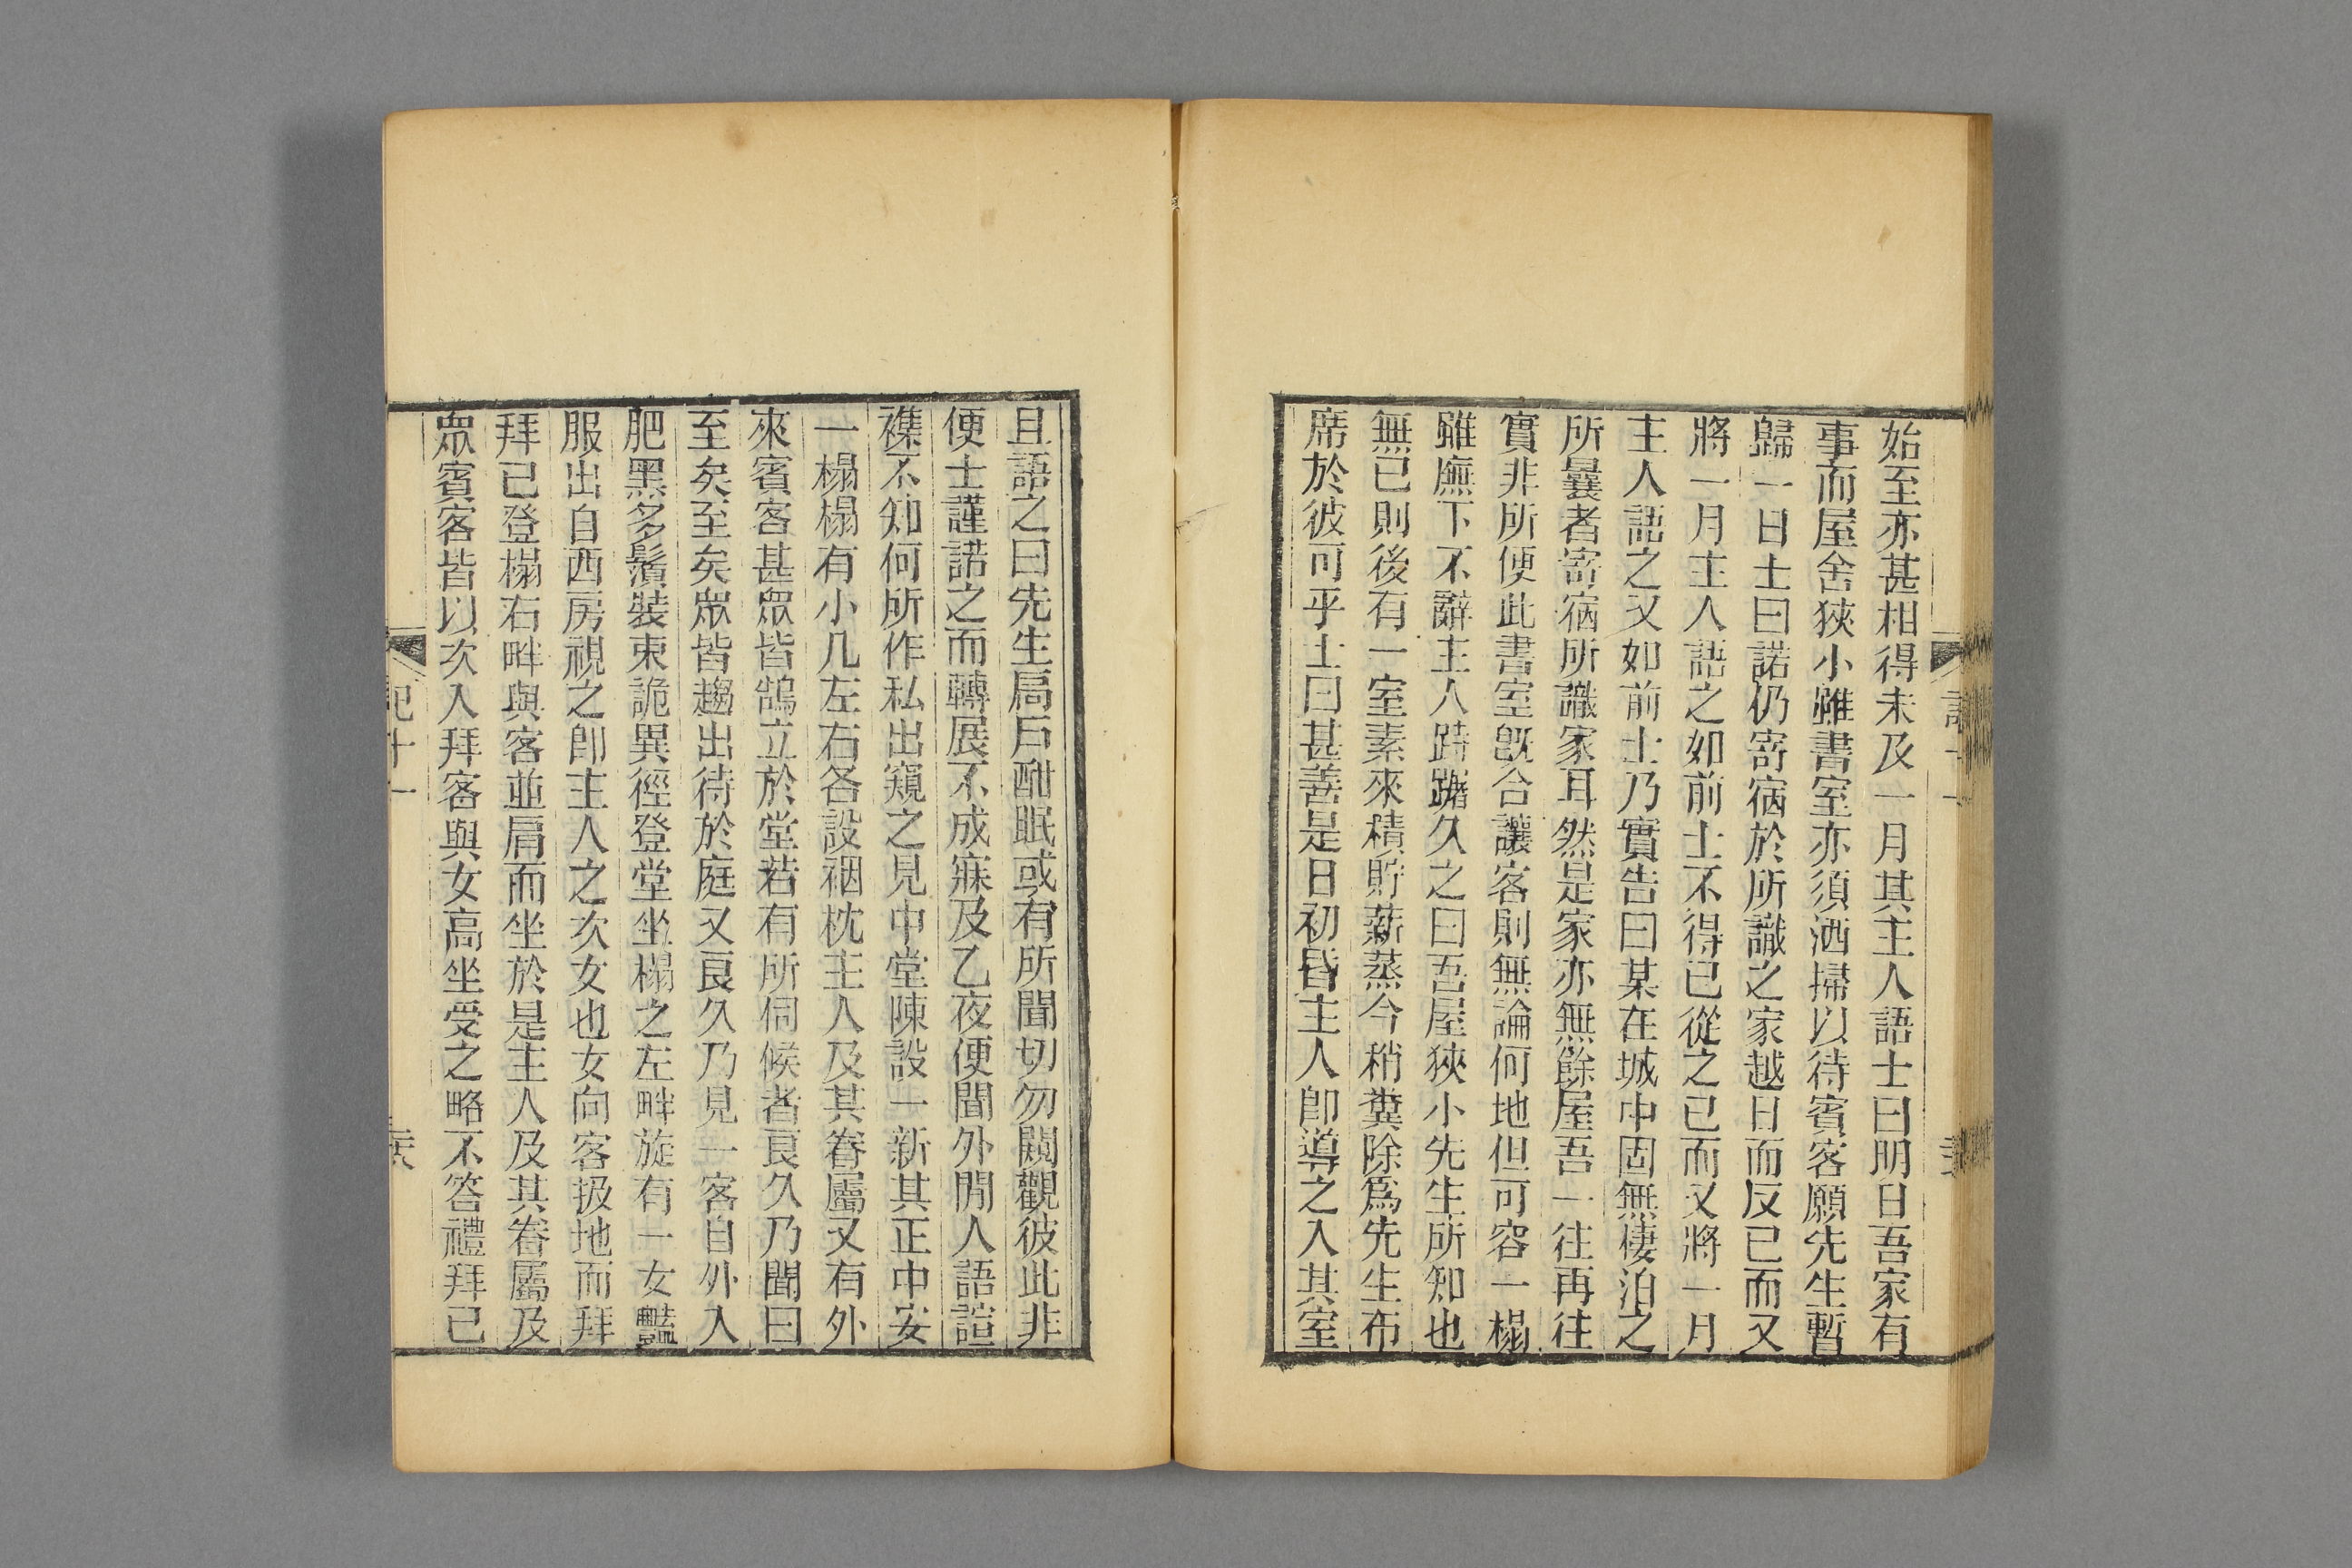 始至亦甚相得未及一月其主人語士曰明日吾家有
事而屋舍狹小雖書室亦須洒掃以待賓客願先生暫
歸一日士曰諾仍寄宿於所識之家越日而反已而又
將一月主人語之如前士不得已從之已而又將一月
主人語之又如前士乃實告曰某在城中固無棲泊之
所曩者寄宿所識家耳然是家亦無餘屋吾一往再往
實非所便此書室旣合讓客則無論何地但可容一榻
雖廡下不辭主人踌躇久之曰吾屋狹小先生所知也
無已則後有一室素來積貯薪蒸今稍糞除爲先生布
席於彼可乎士曰甚善是日初昏主人卽導之入其室
且語之曰先生扃戶酣眠或有所聞切勿闚觀彼此非
便士謹諾之而轉展不成寐及乙夜便聞外閒人語諠
襍不知何所作私出窺之見中堂陳設一新其正中安
一榻榻有小几左右各設裀枕主人及其眷屬又有外
來賓客甚眾皆鵠立於堂若有所伺候者良久乃聞曰
至矣至矣眾皆趨出待於庭又良久乃見一客自外入
肥黑多鬚裝束詭異徑登堂坐榻之左畔旋有一女豔
服出自西房視之卽主人之次女也女向客扱地而拜
拜已登榻右畔與客並肩而坐於是主人及其眷屬及
眾賓客皆以次入拜客與女高坐受之略不答禮拜已
記十一